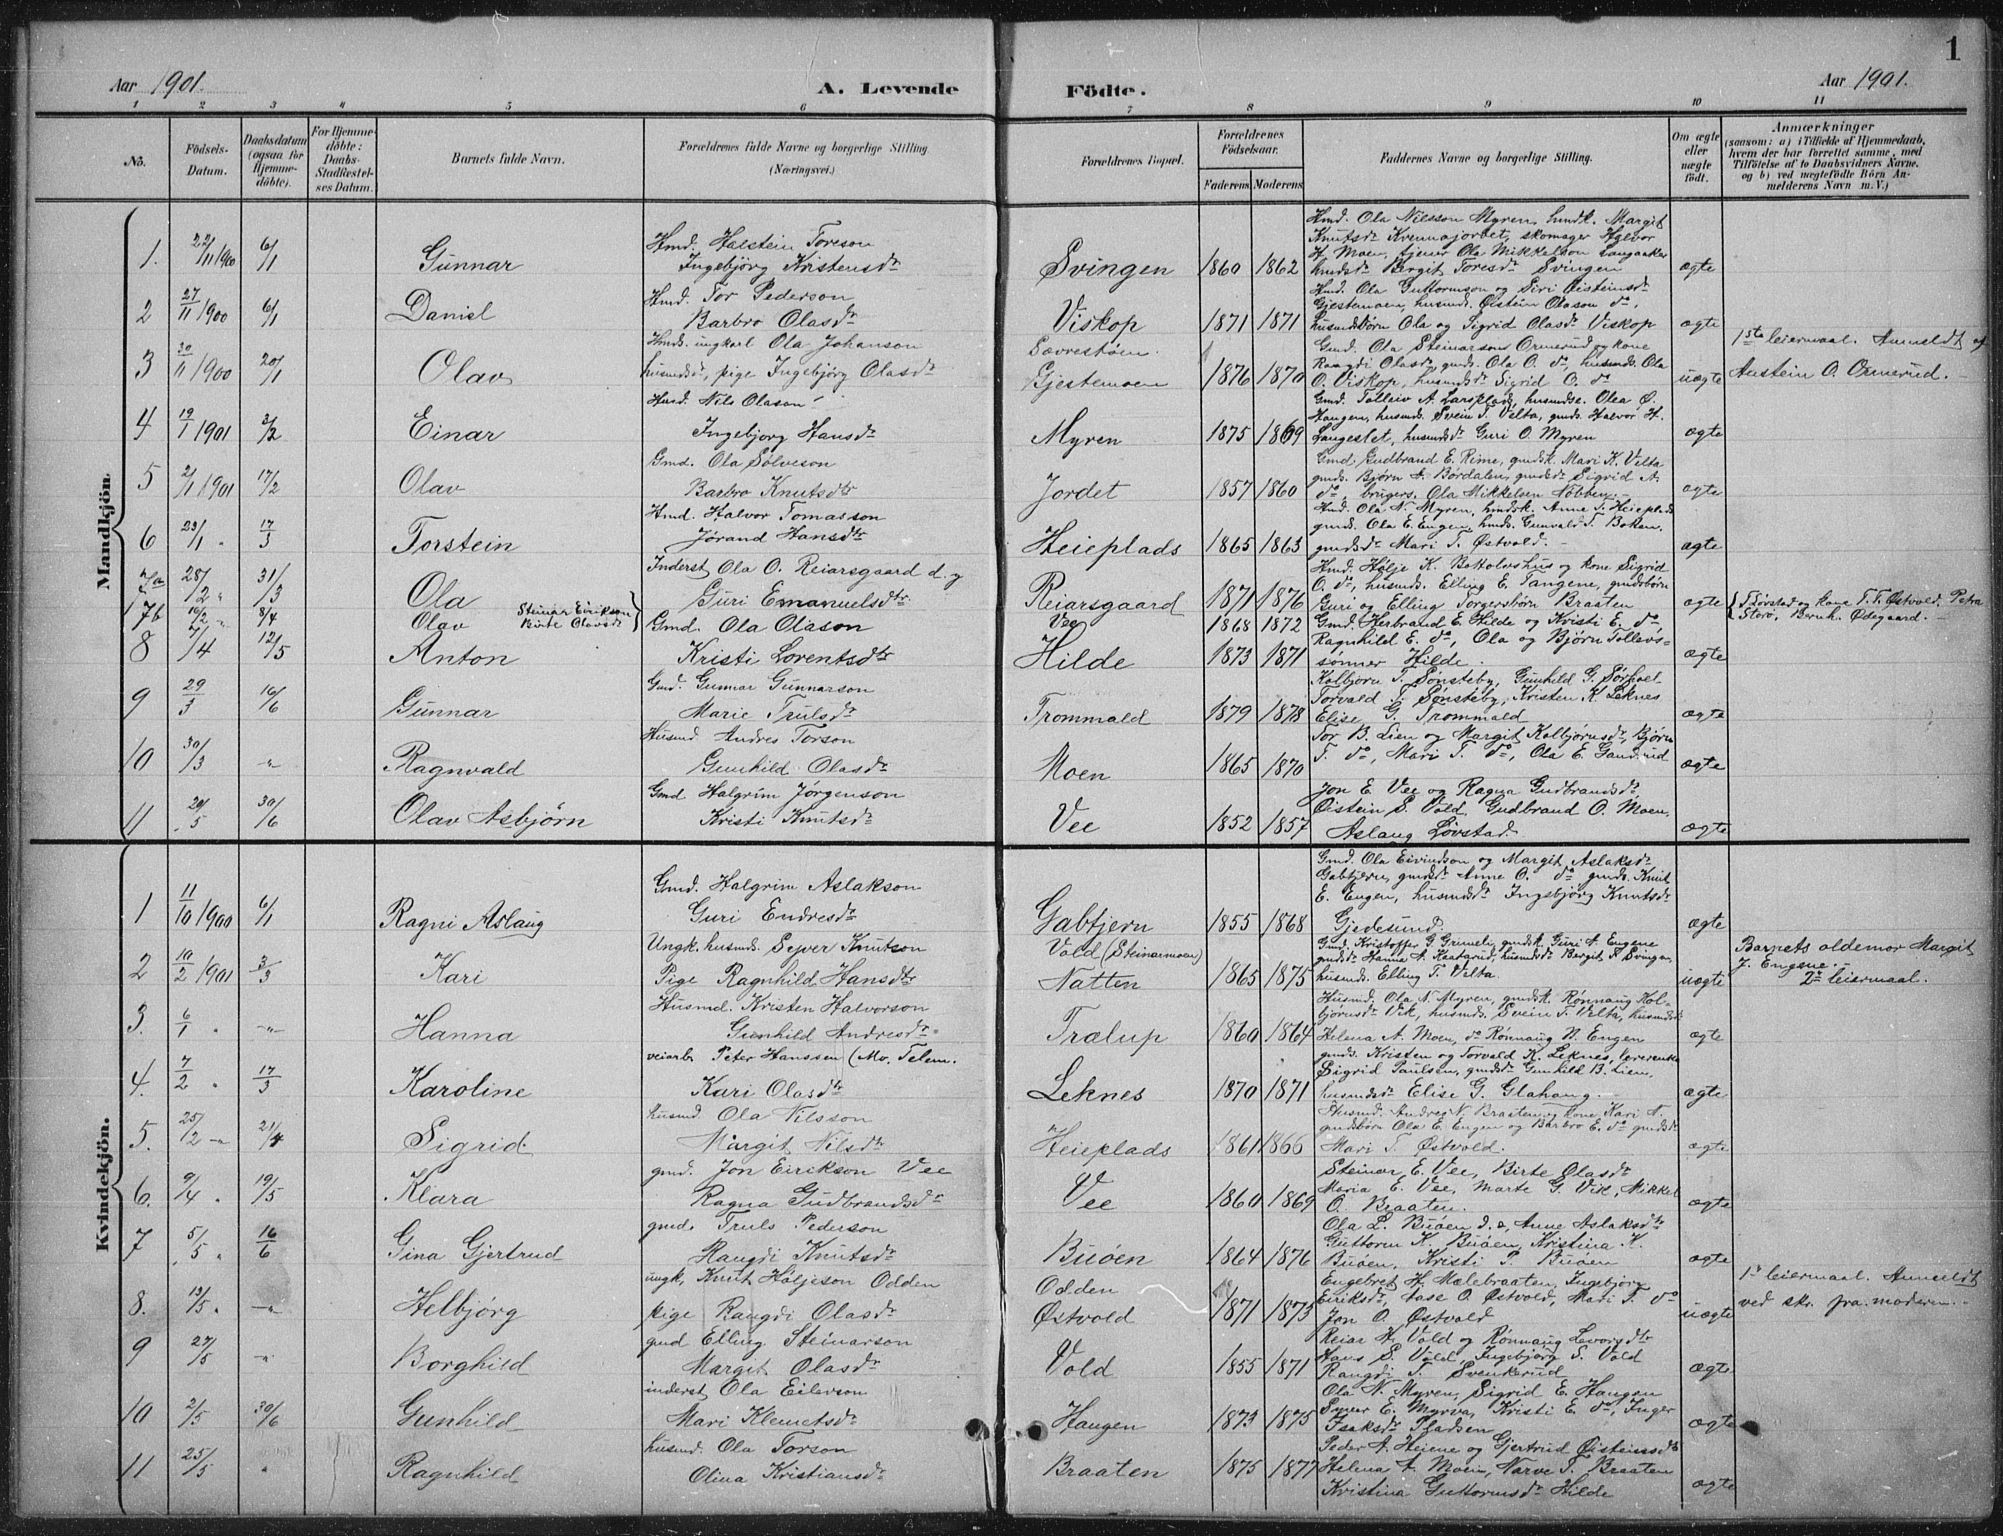 1
Aar 1901.
A. Levende
Födte.
Aar 1901.
1 2 3 4 5 6 7 8 9 10 11
No.
Födsels-Datum.
Daabsdatum (ogsaa for Hjemme-döbte).
For Hjemme-döbte: Daabs-Stadfestel-ses Datum.
Barnets fulde Navn.
Forældrenes fulde Navne og borgerlige Stilling (Næringsvei.)
Forældrenes Bopæl.
Forældrenes Födselsaar.
Faderens Moderens
Faddernes Navne og borgerlige Stilling.
Om ægte eller uægte födt.
Anmærkninger
(saasom: a) i Tilfælde af Hjemmedaab,
hvem der har forrettet samme, med
Tilföielse af to Daabsvidners Navne.
og b) ved uægtefödte Börn An-
melderens Navn m. V.)
Mandkjön.
1. 22/11 1900 6/1 Gunnar Hmd. Halstein Toreson
Ingebjörg Kristensdtr Svingen 1860 1862 Hmd. Ola Nilsson Myren, hmdk. Margit
Knutsdr skomager Halvor
H. Moen, tjener Ola Mikkelson
husmdsdr Birgit Toresdr Svingen ægte
2 27/11 1900 6/1 Daniel Hmd. Tor Pederson
Barbro Olasdr Viskop 1871 1871 Hmd. Ola Guttormson og Siri Øisteinsdr
Gjestemoen, husmds. Øistein Olason do,
husmdsbörn Ola og Sigrid Olasdr Viskop ægte
3 30/11 1900 20/1 Olav Hmds. ungkarl Ola Johanson
husmdsdr, pige Ingebjörg Olasdr Sævrestöen.
Gjestemoen 1876 1870 Gmd. Ola Steinarson Ormerud og kone
Rangdi Olasdr, gmds. Ola O. do, husmds. Ola
O. Viskop, husmdsdr Sigrid O. do uægte 1ste leiermaal. Anmeldt af
Austein O. Ormerud.
4 19/1 1901 3/2 Einar Husd. Nils Olason
Ingebjorg Hansdr Myren 1875 1869 Gmd. Tolleiv A. Larsplads, husmdse. Olea O.
Haugen, husmds. Svein T. Velta, gmds. Halvor H.
Langeslet, husmdsdr Guri O. Myren ægte
5 2/1 1901 17/2 Olav Gmd. Ola Sölveson
Barbro Knutsdtr Jordet 1857 1860 Gmd. Gudbrand E. Rime, gmdsk. Mari K. Velta
gmds. Bjørn A. Børdalen, gmdsdr Sigrid A.
do, brugers. Ola Mikkelsen Nöbben. ægte
6 23/1 " 17/3 Torstein Hmd. Halvor Tomasson
Jörand Hansdtr Heieplads 1865 1863 Hmd. Ola N. Myren, hmdsk. Anne T. Heieplads
gmds. Ola E. Engen, hmds. Gunvald T. Boken,
gmdsdr Mari T. Østvold. ægte
7a 28/2 " 31/3 Ola Inderst Ola O. Reiarsgaard d. y
Guri Emanuelsdtr Reiarsgaard 1871 1876 Hmd. Hølje K. Bottolvshus og kone Sigrid
O. do, husmds. Elling E. Tangene, gmdsbörn
Guri og Elling Torgersbörn Braaten ægte
7b 16/2 " 8/4 Olav Steinar Eirikson
Birte Olavsdr Vee 1868 1872 Thørstad og kone T. T. Østvold, Petra
Storö, Bernh. Ødegaard.
8 7/4 12/5 Anton Gmd. Ola Olason
Kristi Lorentsdtr Hilde 1873 1871 Gmd. Herbrand E. Hilde og Kristi E. do,
Ragnhild E. do, Ola og Bjørn Tollevs-
sønner Hilde. ægte
9 29/3 16/6 Gunnar Gmd. Gunnar Gunnarson
Marie Trulsdr Trommald 1879 1878 Kolbjorn T. Sønsteby, Gunhild G. Sørhoel
Torvald T. Sønsteby, Kristen K. Leknes
Elise G. Trommald ægte
10 30/3 " Ragnvald Husmd Andres Torson
Gunhild Olasdr Moen 1865 1870 Tor B. Lien og Margit Kolbjörnsdr, Bjørn
T. do, Mari T. do, Ola E. Gandrud ægte
11 20/5 30/6 Olav Asbjörn Gmd Halgrim Jorgenson
Kristi Knutsdr Vee 1852 1857 Jon E. Vee og Ragna Gudbrandsdr,
Øistein S. Vold, Gudbrand O. Moen,
Aslaug Løvstad. ægte
Kvindekjön.
1 11/10 1900 6/1 Ragni Aslaug Gmd. Halgrim Aslakson
Guri Endresdr Gabtjern 1855 1868 Gmd. Ola Eivindson og Margit Aslaksdr
Gabtjern, gmdsdr Anne O. do gmds. Knut
E. Engen, husmdsdr Ingebjörg Knutsdr
Gjedesund. ægte
2 10/2 1901 3/3 Kari Ungk. husmds. Syver Knutson
Pige Ragnhild Hansdtr Vold (Steinarmoen)
Natten 1865 1875 Gmd. Kristoffer G. Grimeli, gmdsk. Guri A. Engene
gmdsdr Hanna A. Kaatarud, husmdsdr Bergit T. Svingen,
husmds. Elling T. Velta. uægte Barnets oldemor Margit
J. Engene.
2det leiermaal.
3. 6/1 " " Hanna Husmd. Kristen Halvorson
Gunhild Andresdr Trælup 1860 1864 Husmd. Ola N. Myren, gmdsk. Rønnaug Kol-
bjørnsdr Vik, husmds. Svein T. Velta, husmdsdr
Helena A. Moen, do Rønnaug N. Engen ægte
4. 7/2 " 17/3 Karoline veiarb. Peter Hanssen (Mo. Telem.
Kari Olasdtr Leknes 1870 1871 gmds. Kristen og Torvald K. Leknes,
Sigrid Paulsen, gmdsdr Gunhild B. Lien,
husmdsdr Elise G. Glahaug. ægte
5. 25/2 " 21/4 Sigrid husmd Ola Nilsson
Margit Nilsdtr Heieplads 1861 1866 Husmd. Andres N. Braaten og kone Kari A.
gmdsbörn Ola E. Engen og Barbro E. do gmdsdr
Mari T. Østvold. ægte
6. 9/4 " 19/5 Klara gmd. Jon Eirikson Vee
Ragna Gudbrandsdr Vee 1860 1869 Steinar E. Vee, Birte Olasdr
Maria E. Vee, Marte G. Vik, Mikkel
O. Braaten. ægte
7 5/5 " 16/6 Gina Gjertrud gmd. Truls Pederson
Rangdi Knutsdr Buöen 1864 1876 Ola L. Buöen d. e, Anne Aslaksdtr
Guttorm K. Buöen, Kristina K.
Buöen, Kristi P. Buöen ægte
8. 13/5 " " Helbjørg ungk. Knut Høljeson Odden
pige Rangdi Olasdr Odden
Østvold 1871 1873 Engebret H. Mælebraaten, Ingebjörg
Eiriksdr, Aase O. Østvold, Mari T. do
Jon O. Østvold uægte 1ste leiermaal. Anmeldt
ved skr. fra moderen.
9 27/5 " Borghild gmd Elling Steinarson
Margit Olasdr Vold 1855 1871 Reiar H. Vold og Rønnaug Levorsdtr
Hans S. Vold, Ingebjörg S. Vold
Rangdi T. Svenkerud ægte
10 2/5 30/6 Gunhild inderst Ola Eilevson
Mari Klemetsdr Haugen 1873 1875 Ola N. Myren, Sigrid E. Haugen
Syver E. Myrva, Kristi E. do, Inger
Isaksdr Pladsen ægte
11 25/5 " Ragnhild husmd. Ola Torson
Olina Kristiansdr Braaten 1875 1877 Peder A. Heiene og Gjertrud Øisteinsdtr
Helena A. Moen, Narve T. Braaten
Kristina Guttormsdr Hilde ægte